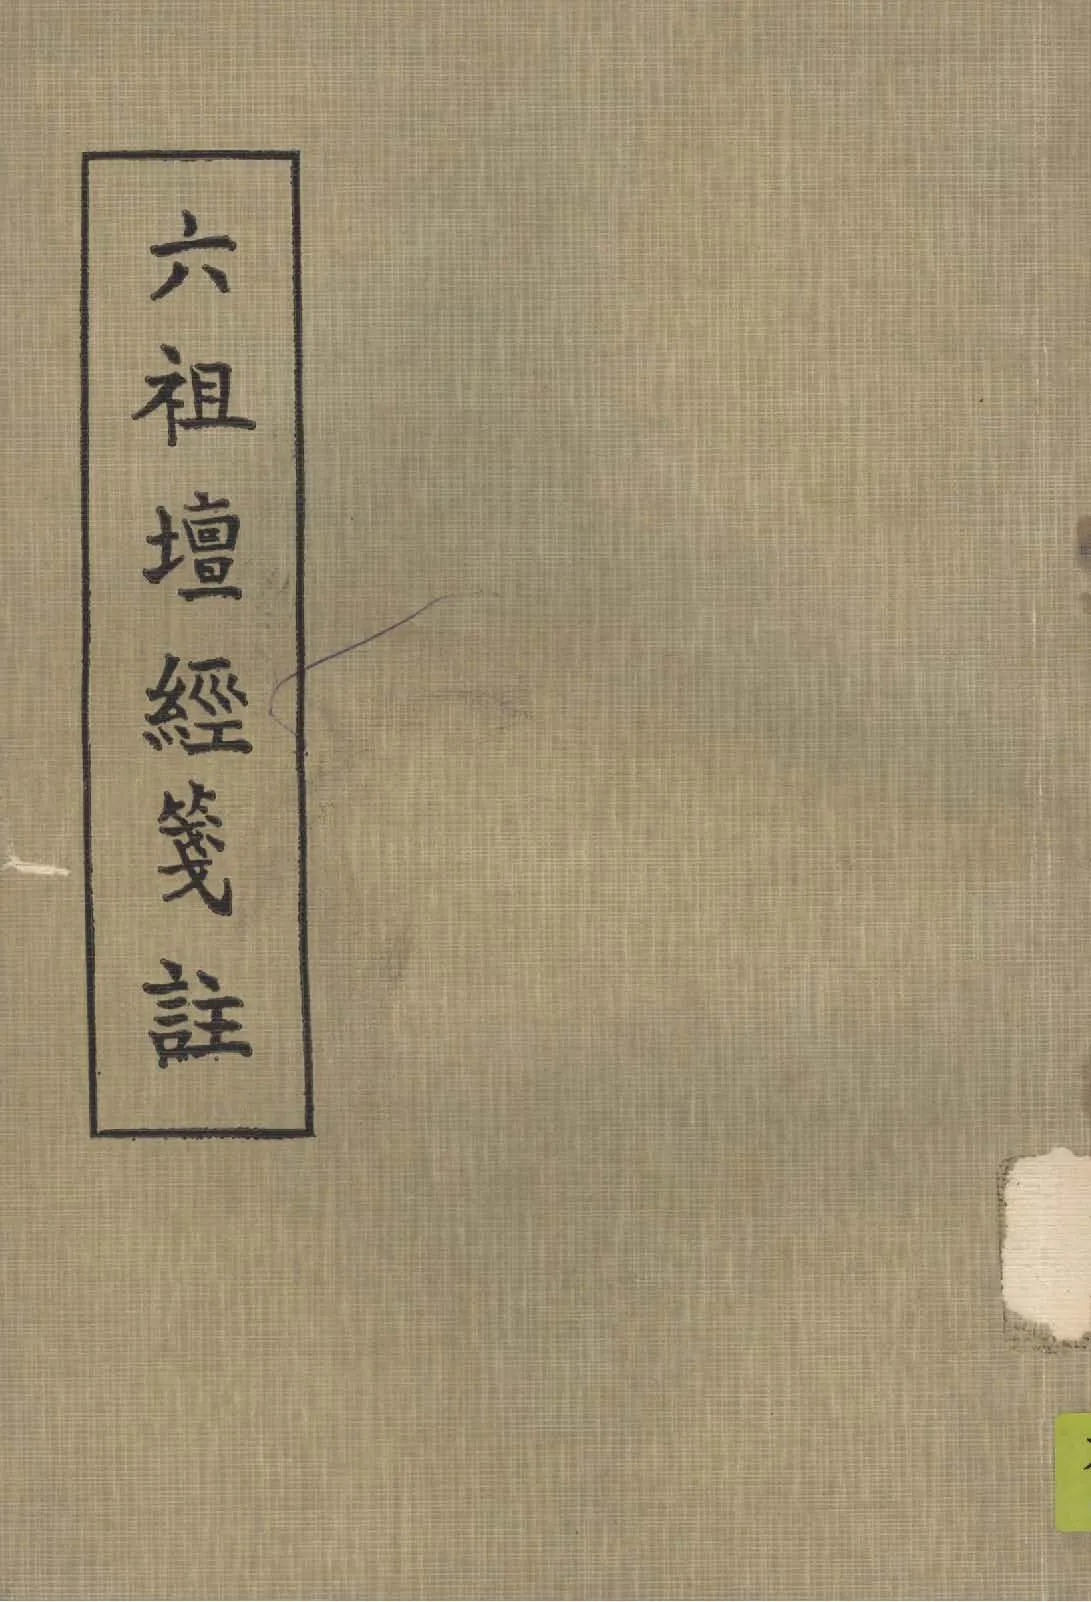 六祖壇經箋註